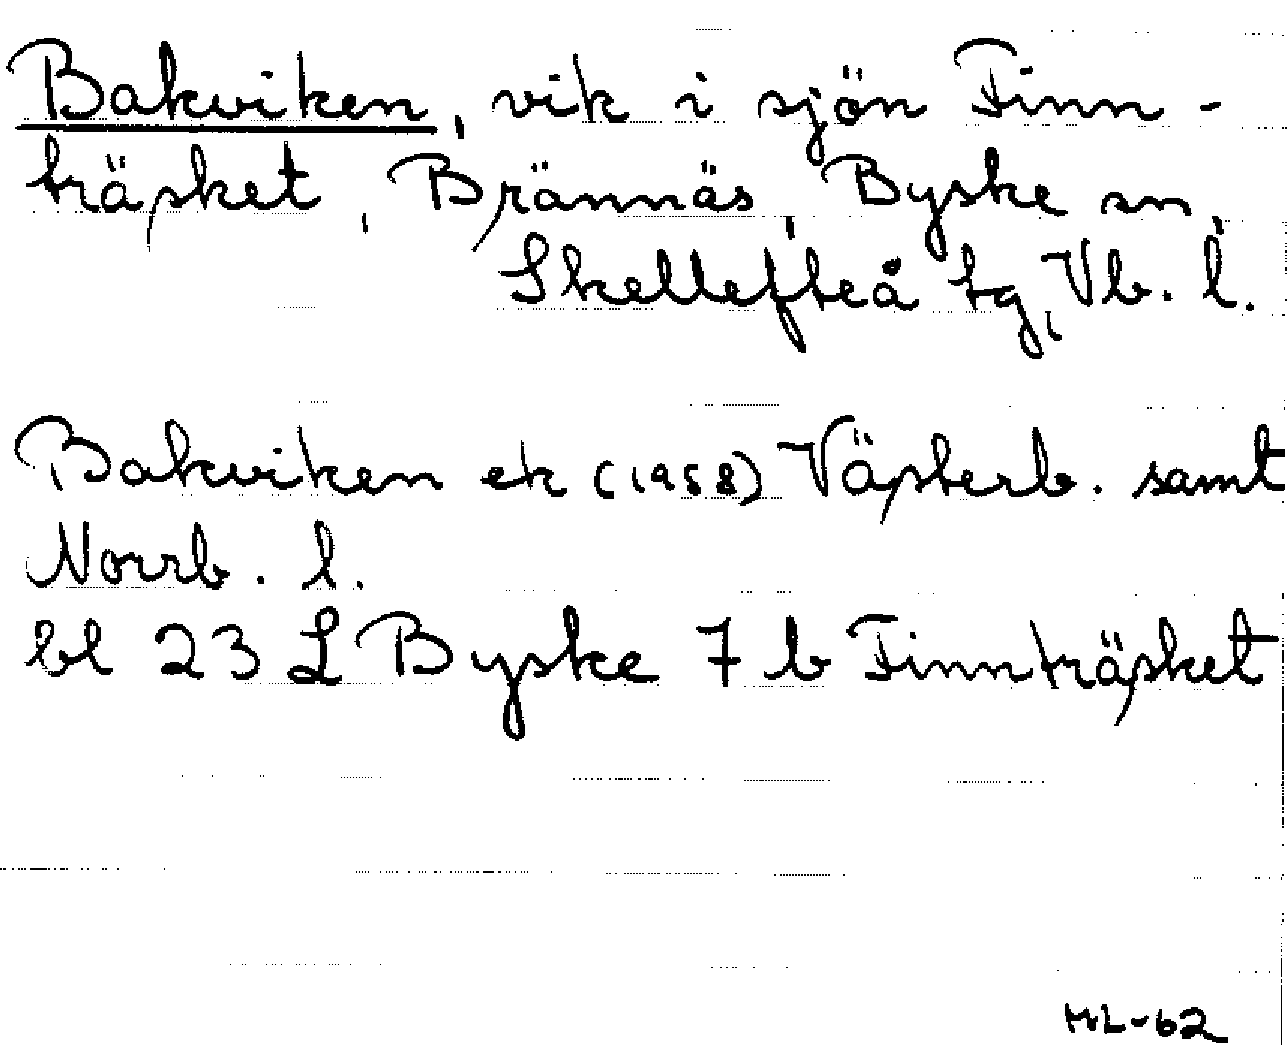 Bakviken, vik i sjön Finn-
träsket, Brännäs, Byske sn,
Skellefteå tg, Vb. l.
Bakviken ek (1958) Västerb. samt
Norrb. l.
bl 23 L Byske 7 b Finnträsket
HL-62